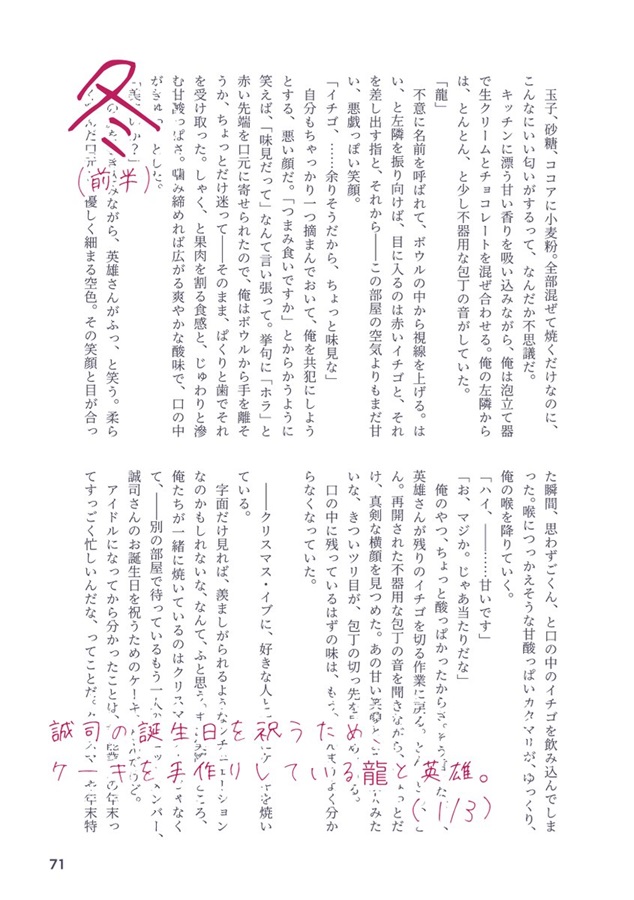 玉子、砂糖、ココアに小麦粉。全部混ぜて焼くだけなのに、
こんなにいい匂いがするって、なんだか不思議だ。
キッチンに漂う甘い香りを吸い込みながら、俺は泡立て器
で生クリームとチョコレートを混ぜ合わせる。俺の左隣から
は、とんとん、と少し不器用な包丁の音がしていた。
「龍」
不意に名前を呼ばれて、ボウルの中から視線を上げる。は
い、と左隣を振り向けば、目に入るのは赤いイチゴと、それ
を差し出す指と、それから――この部屋の空気よりもまだ甘
い、悪戯っぽい笑顔。
「イチゴ、……余りそうだから、ちょっと味見な」
自分もちゃっかり一つ摘まんでおいて、俺を共犯にしよう
とする、悪い顔だ。「つまみ食いですか」とからかうように
笑えば、「味見だって」なんて言い張って。挙句に「ホラ」と
赤い先端を口元に寄せられたので、俺はボウルから手を離そ
うか、ちょっとだけ迷って――そのまま、ぱくりと歯でそれ
を受け取った。しゃく、と果肉を割る食感と、じゅわりと滲
む甘酸っぱさ。噛み締めれば広がる爽やかな酸味で、口の中
とした。
か？」
ながら、英雄さんがふっ、と笑う。柔ら
んだ口元、優しく細まる空色。その笑顔と目が合っ
冬
(前半)
た瞬間、思わずごくん、と口の中のイチゴを飲み込んでしま
った。喉につっかえそうな甘酸っぱいカタマリが、ゆっくり、
俺の喉を降りていく。
「ハイ、――……甘いです」
「お、マジか。じゃあ当たりだな」
俺のやつ、ちょっと酸っぱかったから
英雄さんが残りのイチゴを切る作業に戻る。
ん。再開された不器用な包丁の音を聞きながら、ちょっとだ
け、真剣な横顔を見つめた。あの甘い笑顔と みた
いな、きついツリ目が、包丁の切っ先を る。
口の中に残っているはずの味は、もう、 よく分か
らなくなっていた。
――クリスマス・イブに、好きな人と を焼い
ている。
字面だけ見れば、羨ましがられるような ーション
なのかもしれないな、なんて、ふと思う。 ところ、
俺たちが一緒に焼いているのはクリスマ じゃなく
て、――別の部屋で待っているもう一人 ンバー、
誠司さんのお誕生日を祝うためのケーキ
アイドルになってから分かったことは、 年末っ
てすっごく忙しいんだな、ってことだ。 年末特
誠司の誕生日を祝うため、
ケーキを手作りしている龍と英雄。
(1/3)
71